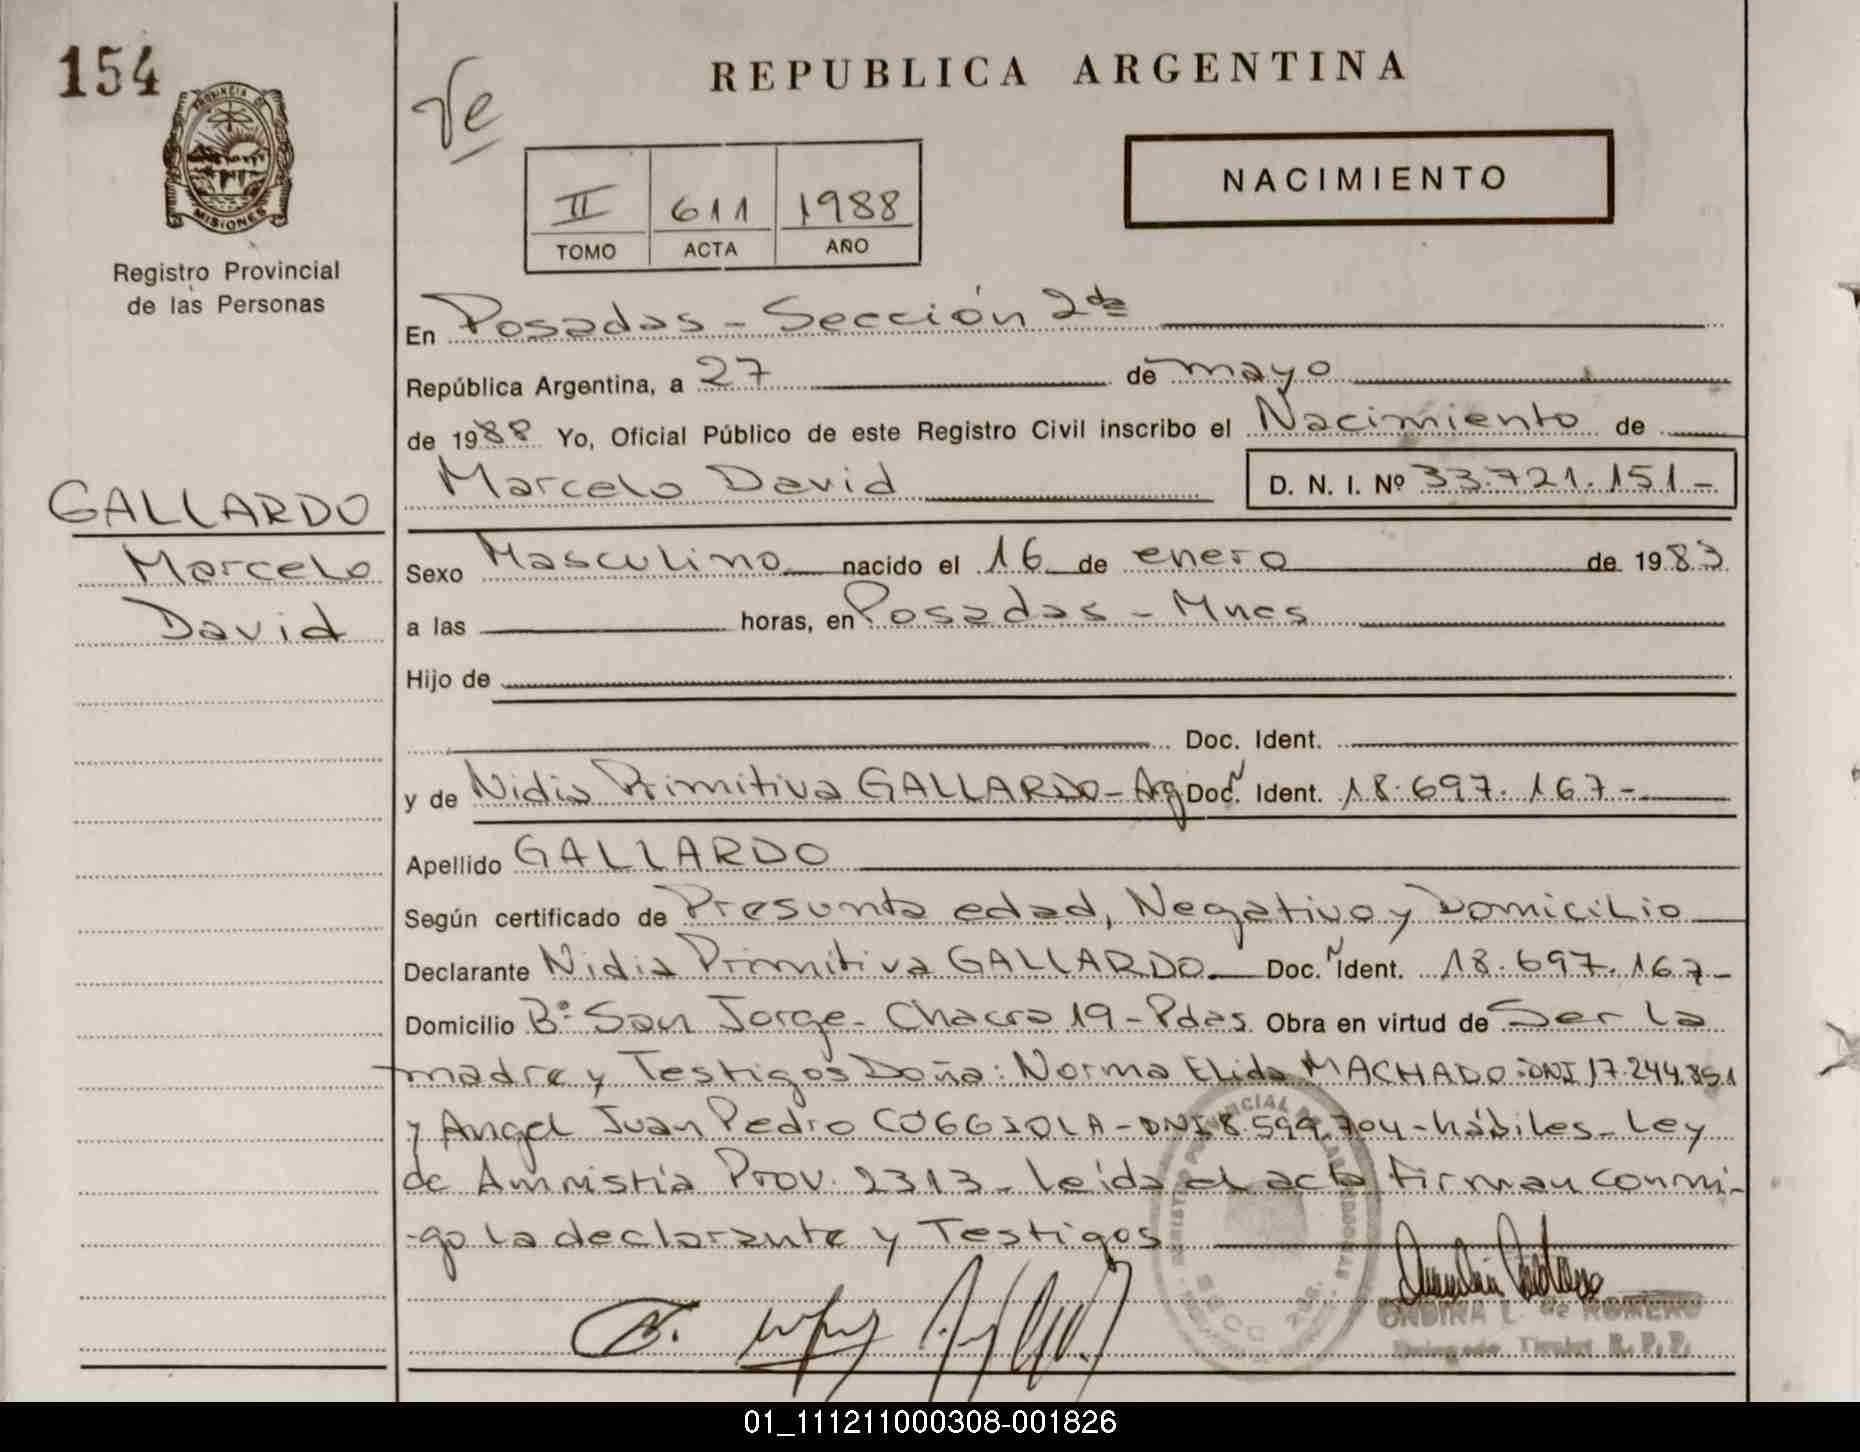 154
PROVINCIA DE
MISIONES
Registro Provincial
de las Personas
GALLARDO
Marcelo
David
REPUBLICA ARGENTINA
NACIMIENTO
II 611 1988
TOMO ACTA AÑO
En Posadas - Sección 2da
República Argentina, a 27 de mayo
de 1988 Yo, Oficial Público de este Registro Civil inscribo el Nacimiento de
Marcelo David D. N. I. Nº 33.721.151-
Sexo Masculino nacido el 16 de enero de 1983
a las horas, en Posadas - Mnes
Hijo de
Doc. Ident.
y de Nidia Primitiva GALLARDO - Arg Doc. Ident. 18.697.167-
Apellido GALLARDO
Según certificado de Presunta edad, Negativo y Domicilio
Declarante Nidia Primitiva GALLARDO Doc. Ident. 18.697.167-
Domicilio Bº San Jorge - Chacra 19 - Pdas Obra en virtud de Ser la
madre y Testigos Doña: Norma Elida MACHADO: DNI 17.244.851
y Angel Juan Pedro COGGIOLA - DNI 8.599.704 - hábiles - Ley
de Amnistía Prov. 2313 - Leída el acta firman conmi-
-go la declarante y Testigos
ONDINA L. de ROMERO
Delegado Titular R. P. P.
01_111211000308-001826